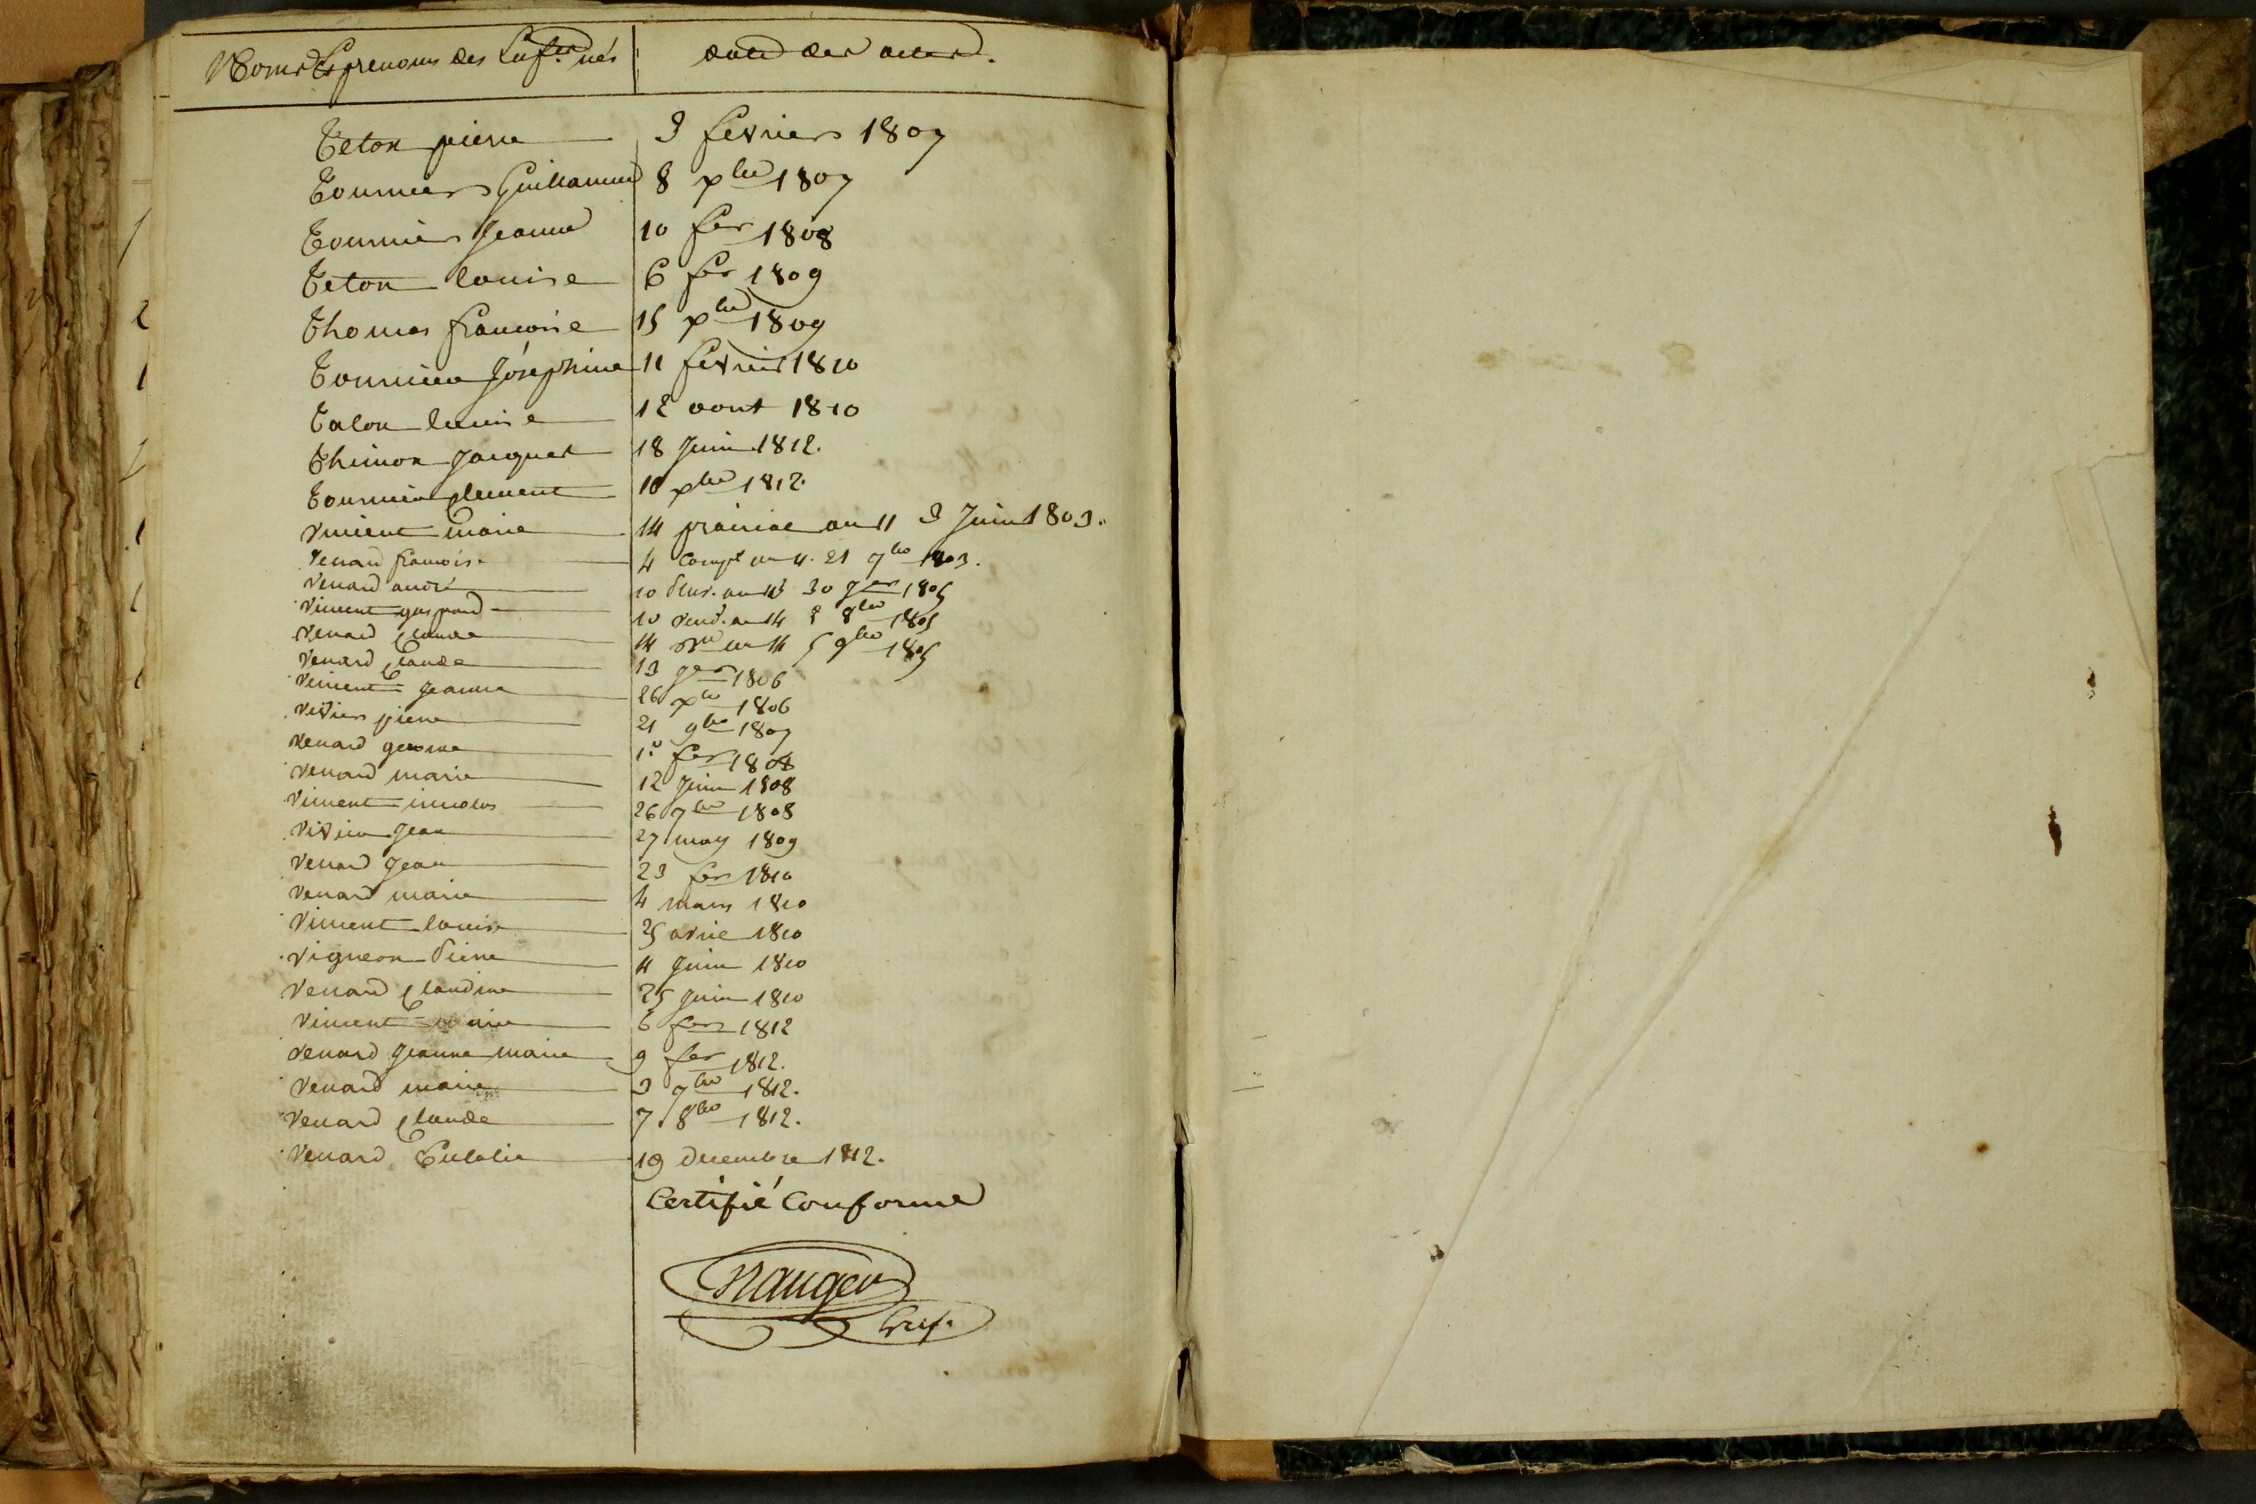 Noms Et prenoms des Enfts nés date des actes.
Teton pierre 3 fevrier 1807
Tournier Guillaume 8 xbre 1807
Tournier Jeanne 10 fer 1808
Teton louise 6 fer 1809
Thomas francoise 15 xbre 1809
Tournier Joséphine 11 fevrier 1810
Talon louise 12 aout 1810
Thimon Jacques 18 Juin 1812.
Tournier Clement 18 xbre 1812.
Vincent marie 14 prairial an 11 3 Juin 1803.
Venard francoise 4 Compt an 11. 21 7bre 1803.
Venard andré 10 pluv. an 13 30 Jer 1805
Vincent gaspard 10 Vend. an 14 2 8bre 1805
Venard Claude 14 bre an 14 5 9bre 1805
Venard Claude 13 Jer 1806
Vincent Jeanne 26 xbre 1806
Vivier pierre 21 9bre 1807
Venard gerome 1er fer 1808
Venard marie 12 Juin 1808
Vincent nicolas 26 7bre 1808
Vivier Jean 27 may 1809
Venard Jean 23 fer 1810
Venard marie 4 mars 1810
Vincent louise 25 avril 1810
Vigneron Pierre 11 Juin 1810
Venard Claudine 25 Juin 1810
Vincent marie 6 fer 1812
Venard Jeanne marie 9 fer 1812.
Venard marie 3 7bre 1812.
Venard Claude 7 8bre 1812.
Venard Eulalie 19 decembre 1812.
Certifié Conforme
Gref.